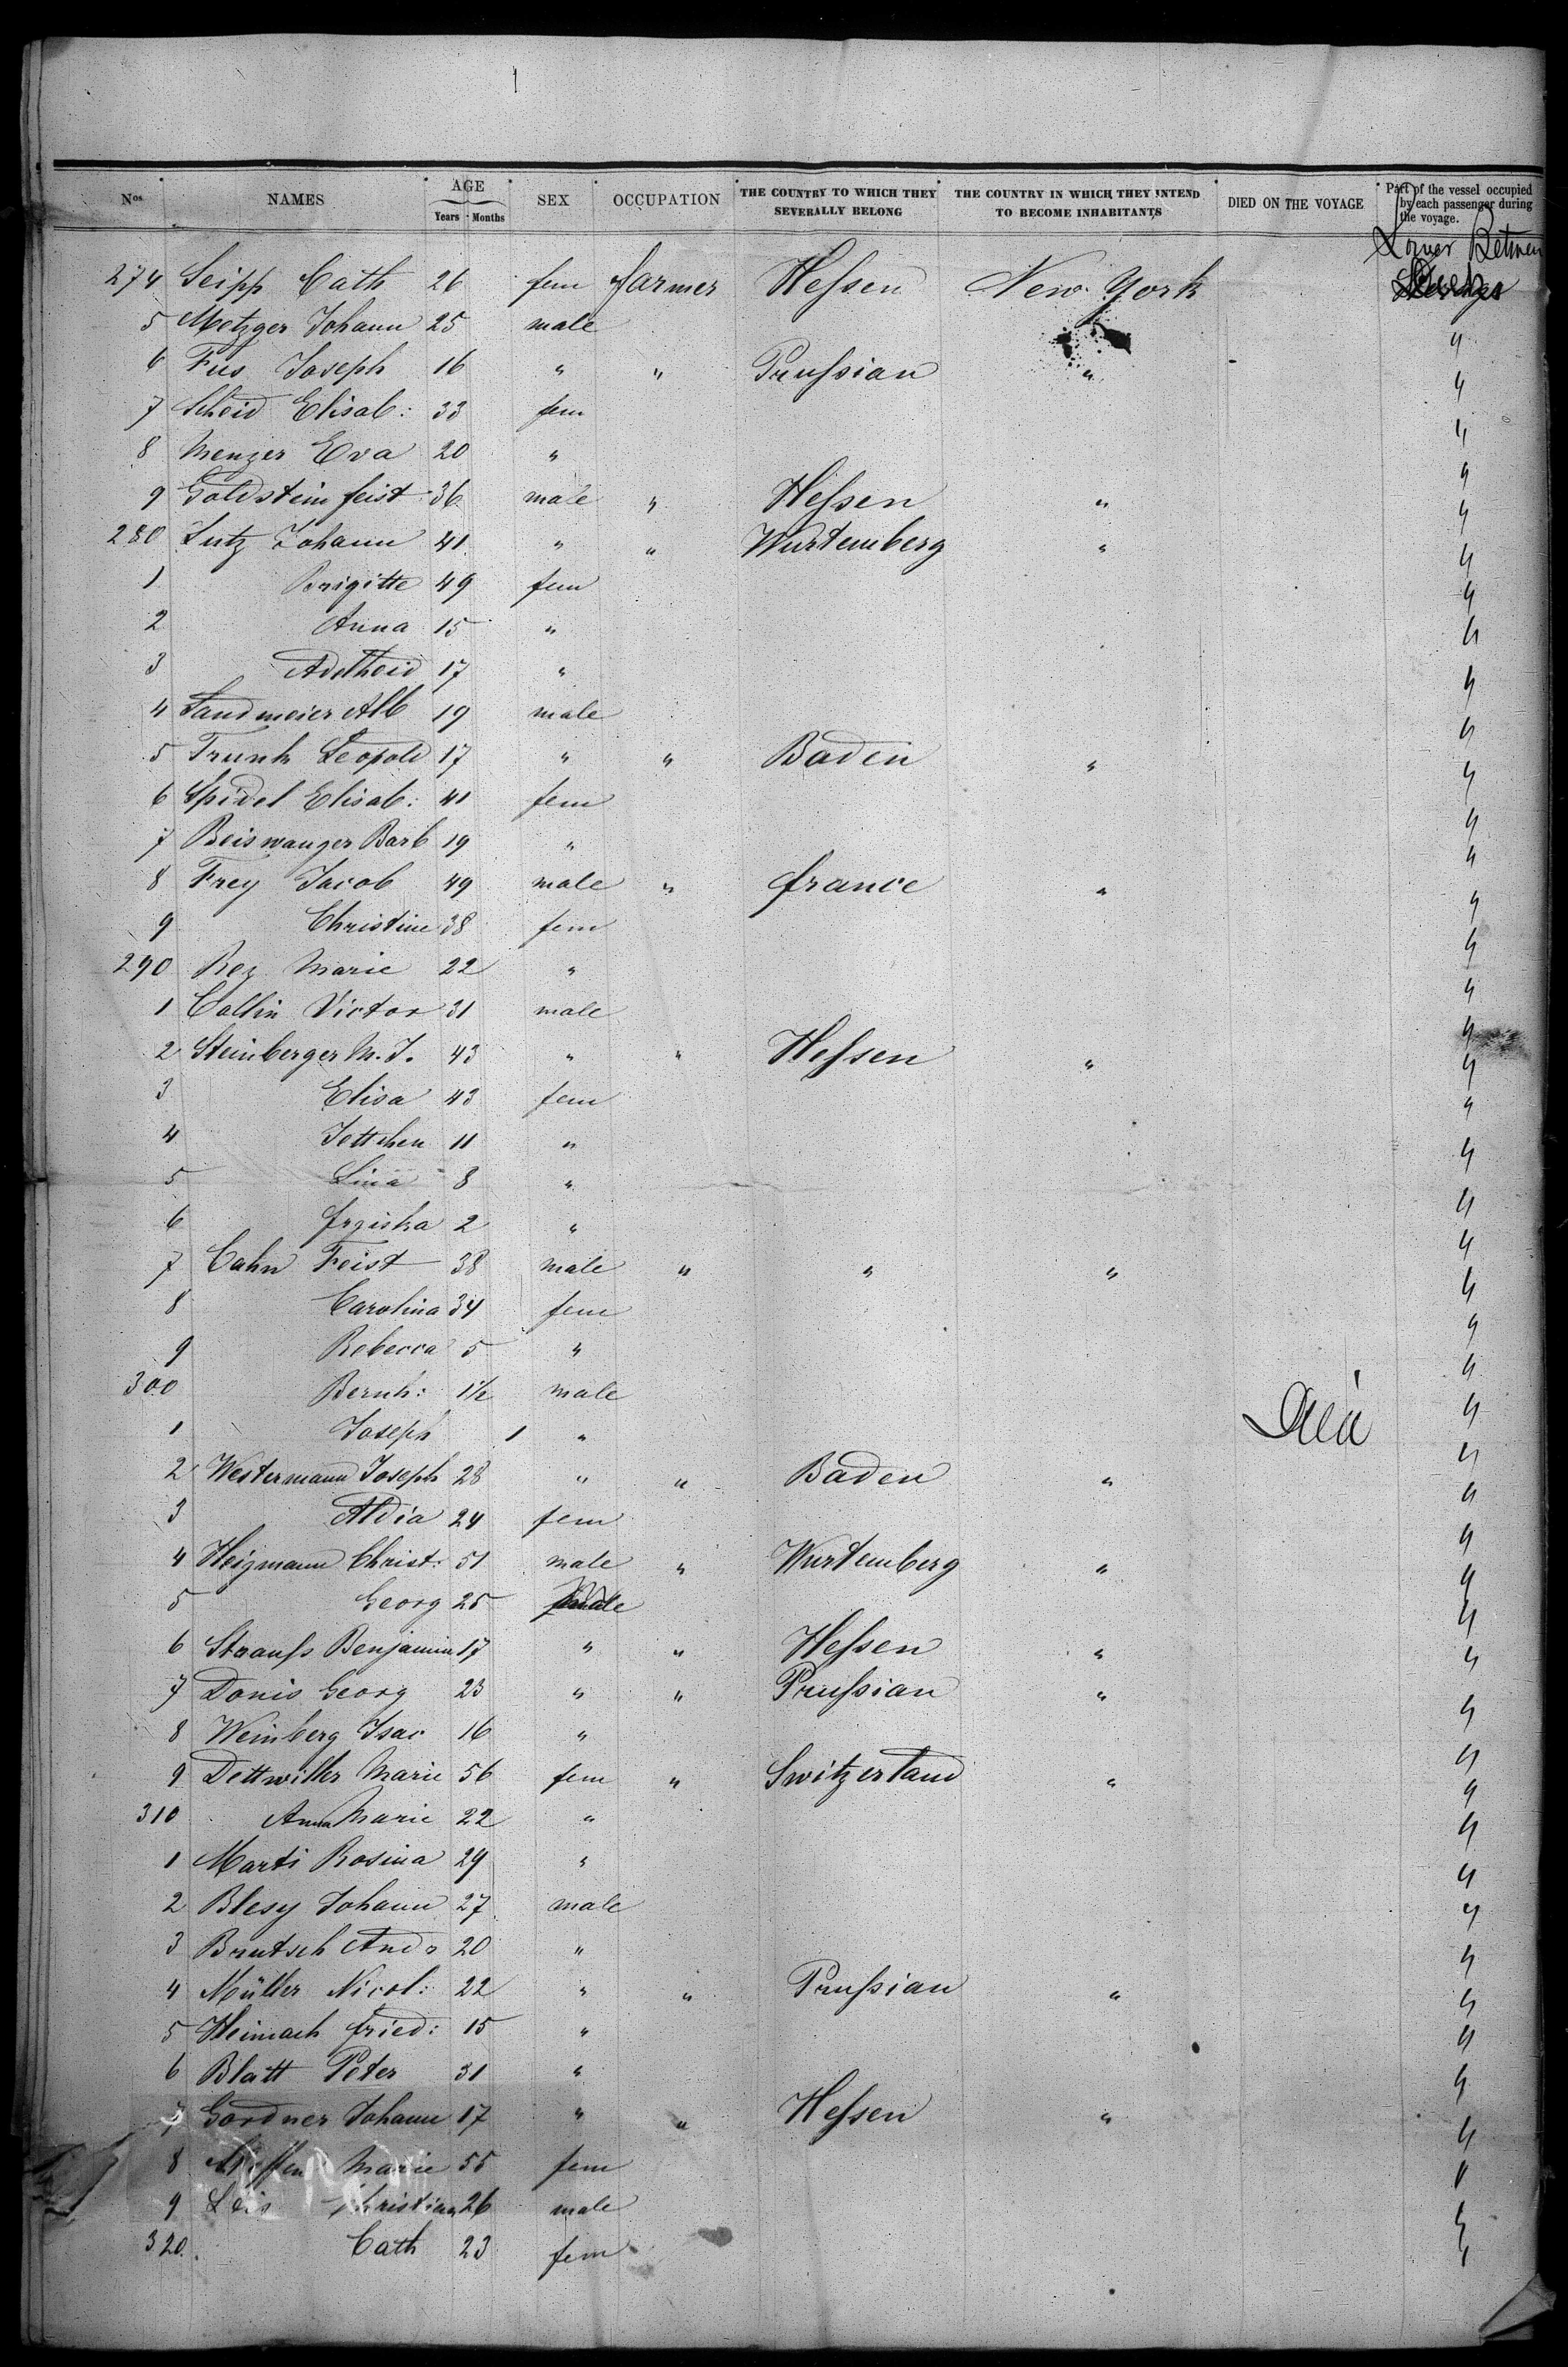 Nos NAMES AGE Years Months SEX OCCUPATION THE COUNTRY TO WHICH THEY SEVERALLY BELONG THE COUNTRY IN WHICH THEY INTEND TO BECOME INHABITANTS DIED ON THE VOYAGE Part of the vessel occupied by each passenger during the voyage.
Lower Between
274 Seipp Cath 26 fem farmer Hessen New York
5 Metzger Johann 25 male "
6 Fus Joseph 16 " " Prussian " "
7 Scheid Elisab: 33 fem "
8 Menzer Eva 20 " "
9 Goldstein feist 36 male " Hessen " "
280 Lutz Johann 41 " " Wurtemberg " "
1 Brigitte 49 fem "
2 Anna 15 " "
3 Adelheid 17 " "
4 Landmeier Alb 19 male "
5 Trunk Leopold 17 " " Baden " "
6 Spidel Elisab: 41 fem "
7 Beiswanger Barb 19 " "
8 Frey Jacob 49 male " france " "
9 Christine 38 fem "
290 Rez Marie 22 " "
1 Collin Victor 31 male "
2 Steinberger M. J. 43 " " Hessen " "
3 Elisa 43 fem "
4 Jettchen 11 " "
5 Lina 8 " "
6 2 " "
7 Cahn Feist 38 male " " " "
8 Carolina 34 fem "
9 Rebecca 5 " "
300 Bernh: 1½ male "
1 Joseph 1 " Died "
2 Westermann Joseph 28 " " Baden " "
3 Aldia 24 fem "
4 Heizmann Christ: 51 male " Wurtemberg " "
5 Georg 25 male "
6 Strauss Benjamin 17 " " Hessen " "
7 Donis Georg 23 " " Prussian " "
8 Weinberg Isac 16 " "
9 Dettwiller Marie 56 fem " Switzerland " "
310 Anna Marie 22 " "
1 Marti Rosina 29 " "
2 Blesy Johann 27 male "
3 Brutsch And 20 " "
4 Müller Nicol: 22 " " Prussian " "
5 Heimach fried: 15 " "
6 Blatt Peter 31 " "
7 Gordner Johann 17 " " Hessen " "
8 Steffen Marie 55 fem "
9 Christian 26 male "
320 Cath 23 fem "